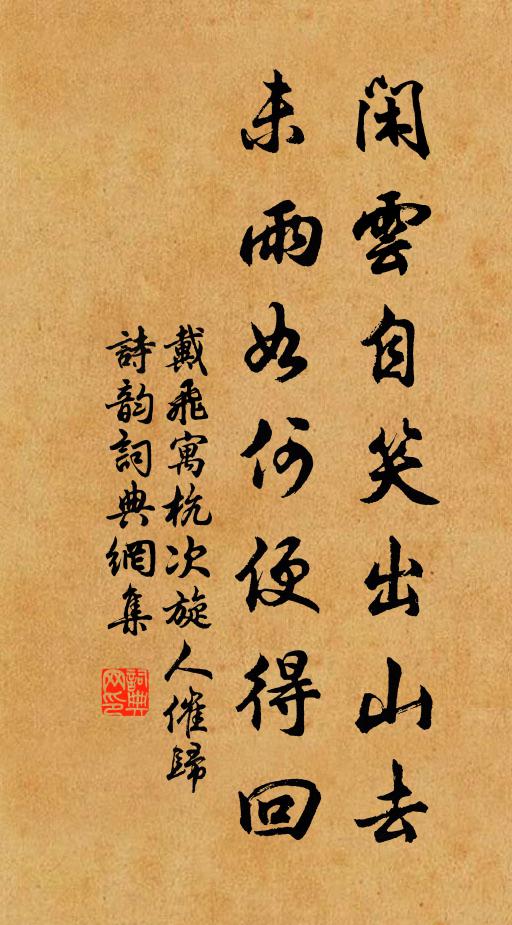 閑雲自笑出山去
未雨如何便得回
戴飛寓杭次旋人催歸
詩韵詞典網集
詞典
网印